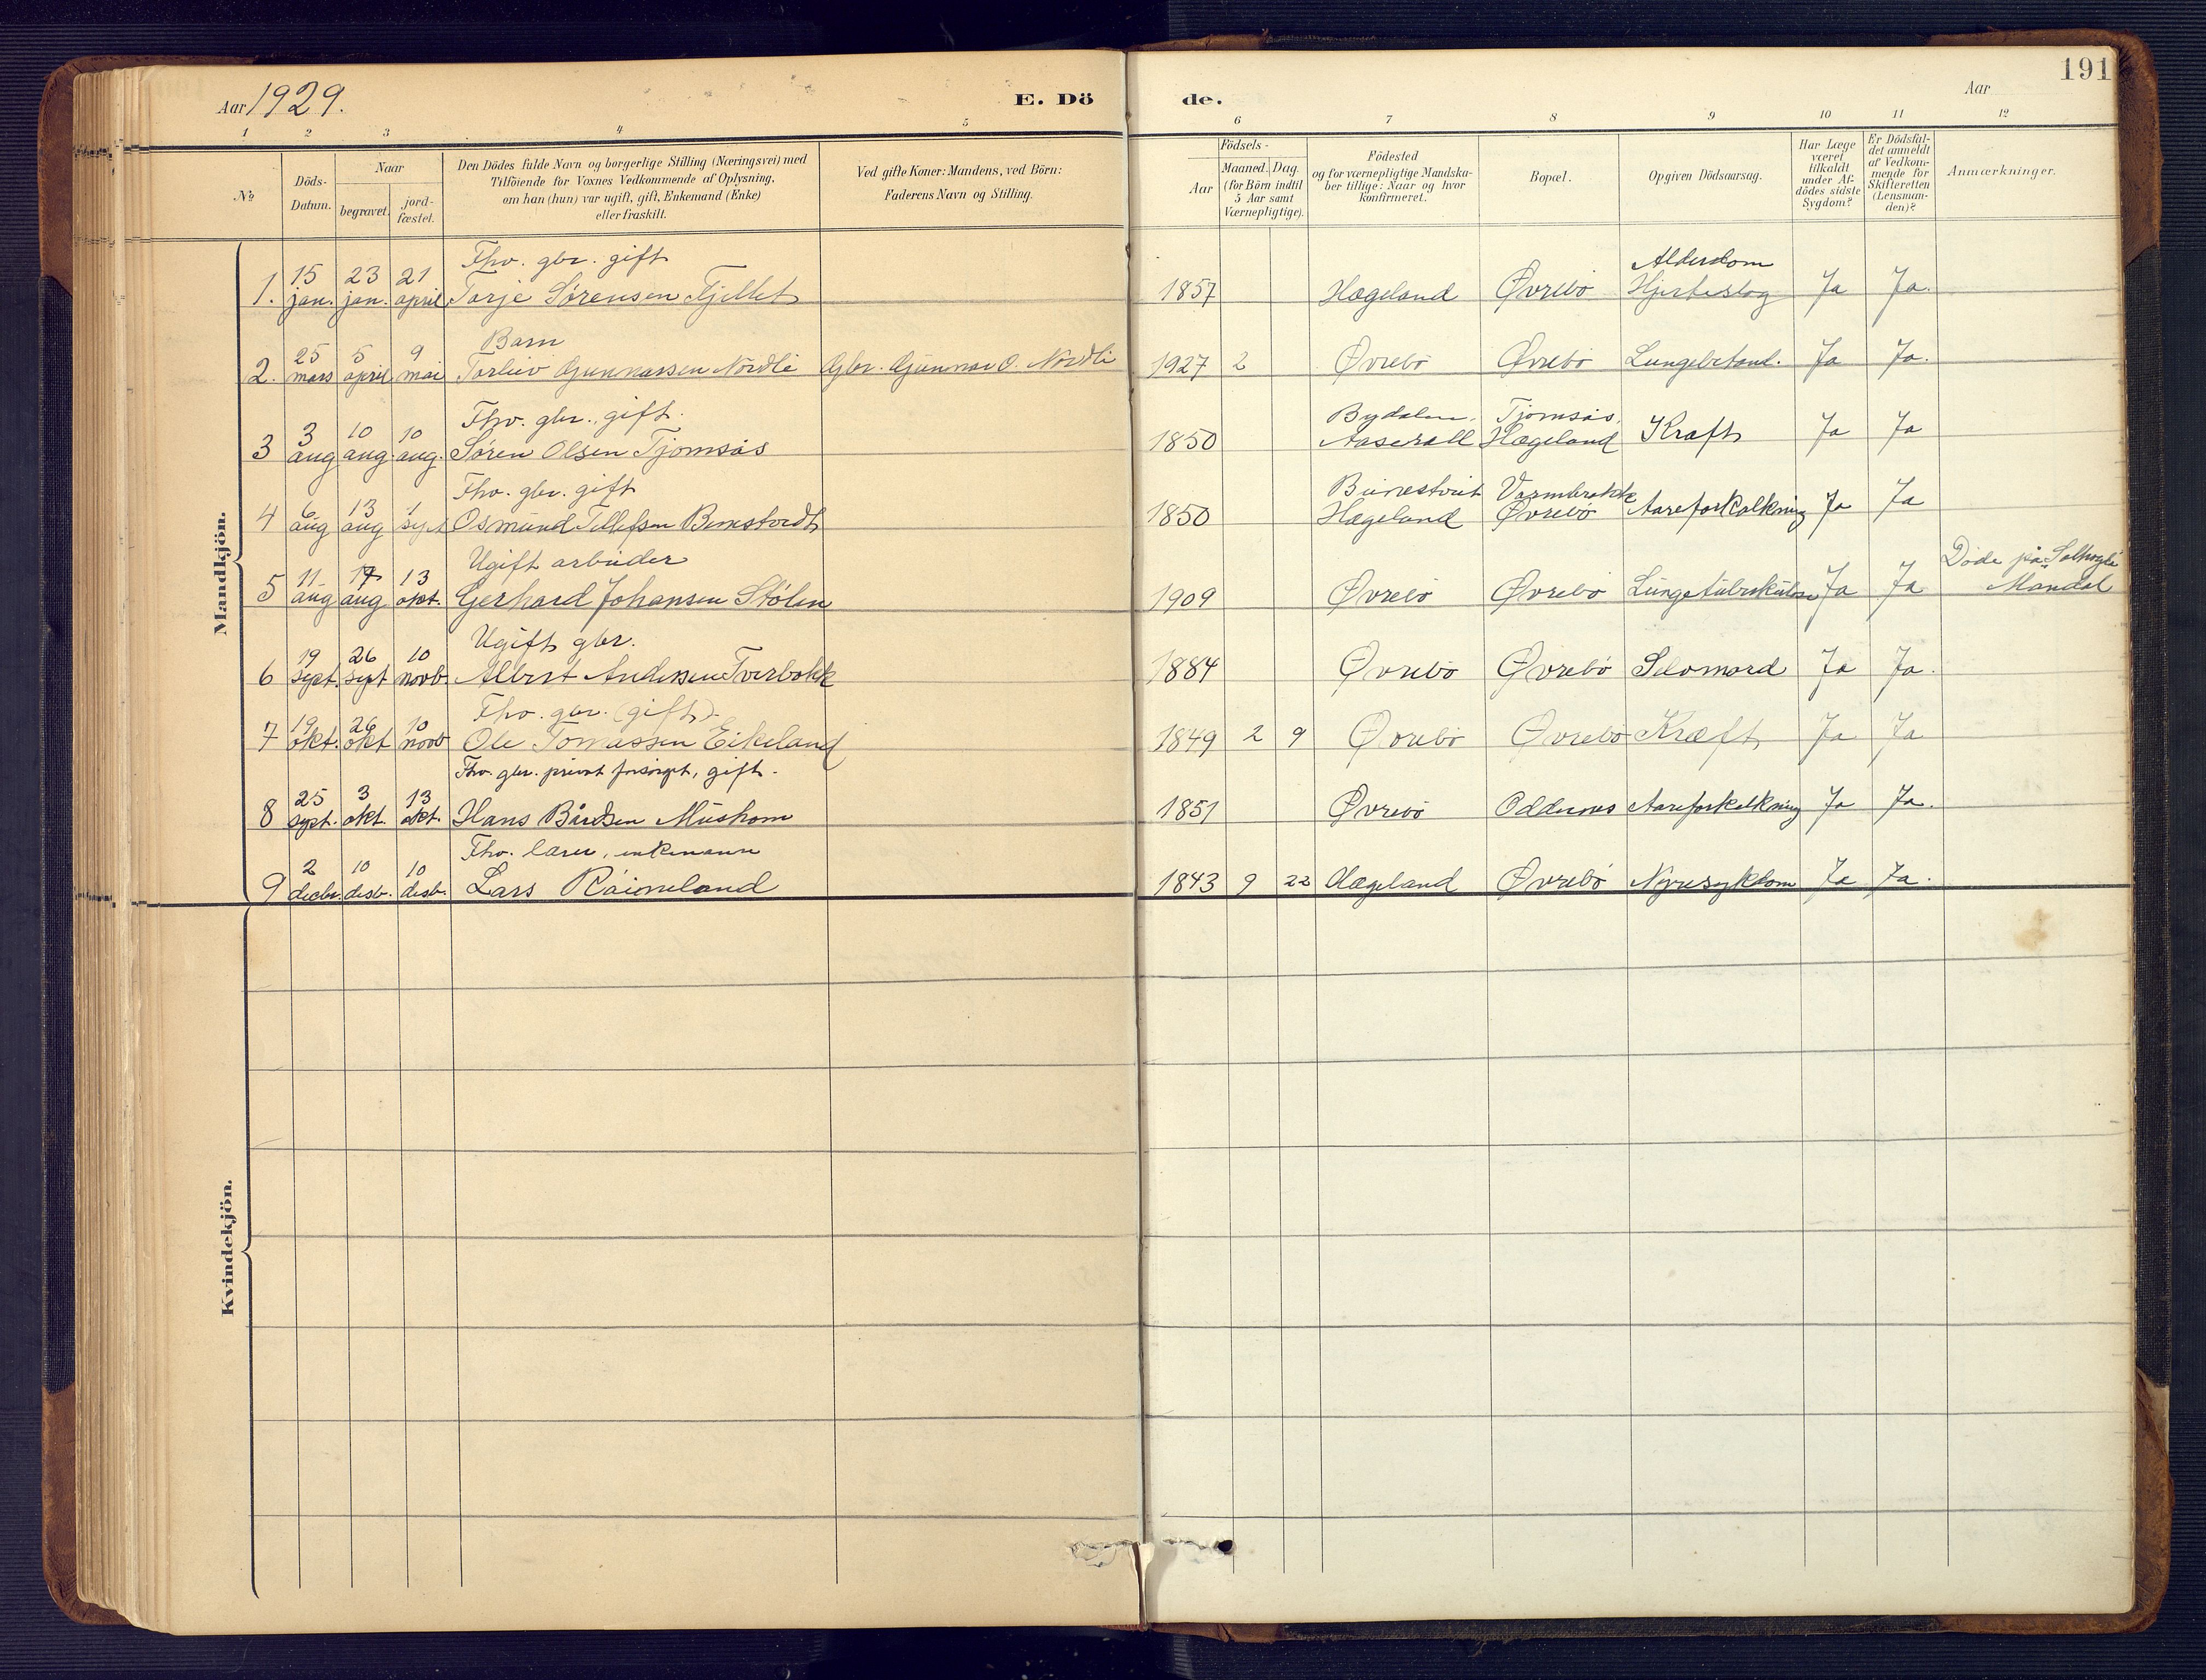 191
Aar 1929.
E. Dö
de.
Aar
1 2 3 4 5 6 7 8 9 10 11 12
№
Döds-
Datum.
Naar
begravet.
jord-
fæstet.
Den Dödes fulde Navn og borgerlige Stilling (Næringsvei) med
Tilföiende for Voxnes Vedkommende af Oplysning,
om han (hun) var ugift, gift, Enkemand (Enke)
eller fraskilt.
Ved gifte Koner: Mandens, ved Börn:
Faderens Navn og Stilling.
Födsels-
Aar
Maaned. Dag.
(for Börn indtil
5 Aar samt
Værnepligtige).
Födested
og for værnepligtige Mandska-
ber tillige: Naar og hvor
konfirmeret.
Bopæl.
Opgiven Dödsaarsag.
Har Læge
været
tilkaldt
under Af-
dödes sidste
Sygdom?
Er Dödsfal-
det anmeldt
af Vedkom-
mende for
Skifteretten
(Lensman-
den)?
Anmærkninger.
Mandkjön.
15 23 21 Fhv. gbr. gift Alderdom
1. jan. jan. april Torje Sørensen Fjellet 1857 Hægeland Øvrebø Hjerteslag Ja Ja.
25 5 9 Barn
2. mars april mai Torleiv Gunnarsen Nordli Gbr. Gunnar O. Nordli 1927 2 Øvrebø Øvrebø Lungebetend. Ja Ja.
3 10 10 Fhv. gbr. gift. Bydalen, Tjomsås,
3 aug aug. aug. Søren Olsen Tjomsås 1850 Aaserall Hægeland Kræft Ja Ja
6 13 1 Fhv. gbr. gift Varmbrokk
4 aug aug sept Osmund Tellefsen 1850 Hægeland Øvrebø Aareforkalkning Ja Ja
11 17 13 Ugift arbeider Døde på
5 aug aug okt. Gerhard Johansen Stølen 1909 Øvrebø Øvrebø Lungetuberkulose Ja Ja Mandal
19 26 10 Ugift gbr.
6 sept. sept novb. Albert Andersen Tverbakk 1884 Øvrebø Øvrebø Selvmord Ja Ja.
19 26 10 Fhv. gbr. (gift).
7 okt. okt novb Ole Tomassen Eikeland 1849 2 9 Øvrebø Øvrebø Kræft Ja Ja
Fhv. gbr. privat forsørget, gift.
25 3 13
8 sept. okt. okt. Hans Bårdsen Mushom 1851 Øvrebø Oddernes Aareforkalkning Ja Ja.
2 10 10 Fhv. lærer, enkemann
9 decbr. desb. desb. Lars Røineland 1843 9 22 Hægeland Øvrebø Nyresykdom Ja Ja.
Kvindekjön.